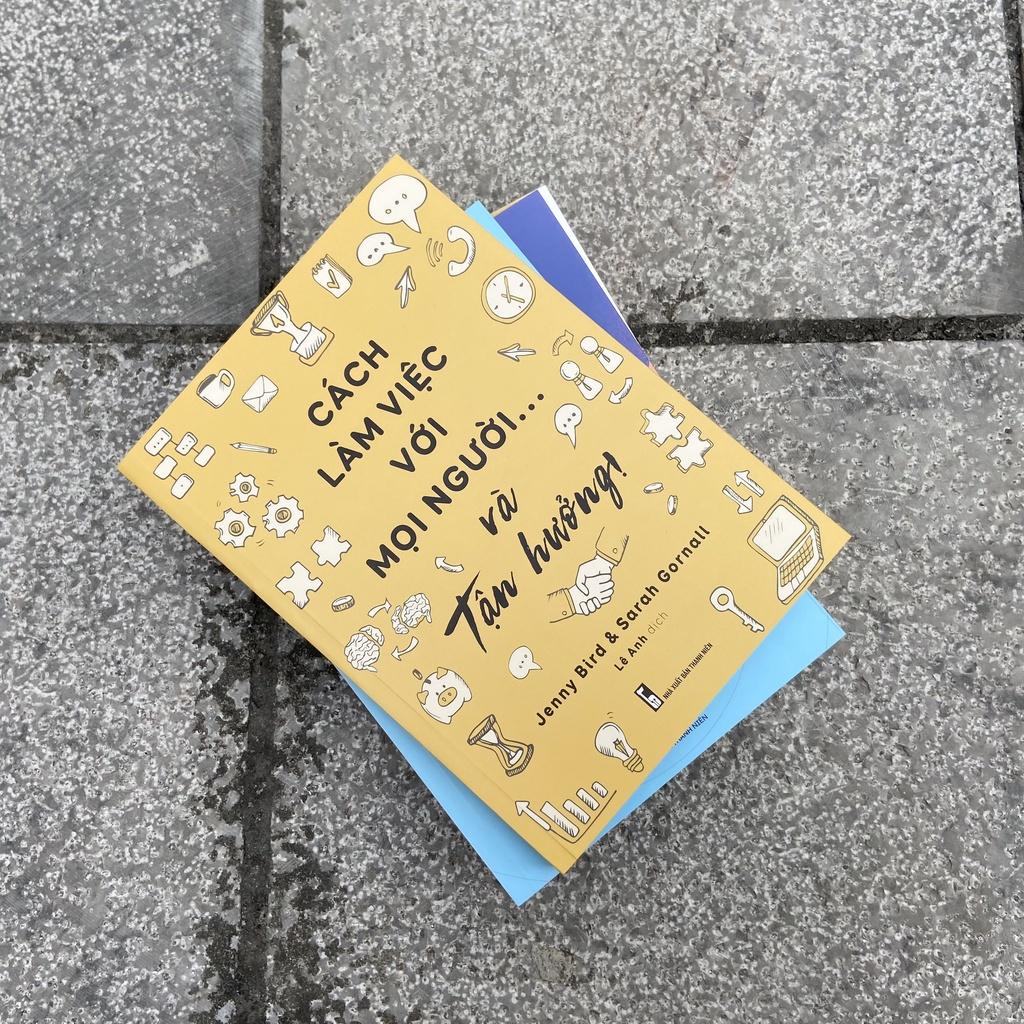 CÁCH
LÀM VIỆC
VỚI
MỌI NGƯỜI...
và
Tận hưởng!
Jenny Bird & Sarah Gornall
Lê Anh dịch
NHÀ XUẤT BẢN THANH NIÊN
THANH NIÊN